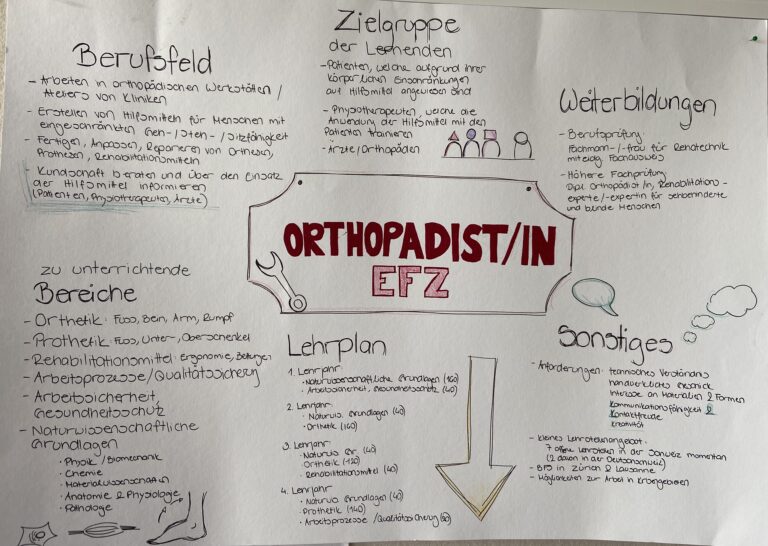 Berufsfeld
- Arbeiten in orthopädischen Werkstätten /
Ateliers von Kliniken
- Erstellen von Hilfsmitteln für Menschen mit
eingeschränkten Geh-/Steh-/Sitzfähigkeit
- Fertigen, Anpassen, Reparieren von Orthesen,
Prothesen, Rehabilitationsmitteln
- Kundschaft beraten und über den Einsatz
der Hilfsmittel informieren
(Patienten, Physiotherapeuten, Ärzte)
Zielgruppe
der Lernenden
- Patienten, welche aufgrund ihrer
körperlichen Einschränkungen
auf Hilfsmittel angewiesen sind
- Physiotherapeuten, welche die
Anwendung der Hilfsmittel mit den
Patienten trainieren
- Ärzte/Orthopäden
Weiterbildungen
- Berufsprüfung:
Fachmann-/-frau für Rehatechnik
mit eidg. Fachausweis
- Höhere Fachprüfung
Dipl. Orthopädist/in, Rehabilitations-
experte/-expertin für sehbehinderte
und blinde Menschen
ORTHOPÄDIST/IN
EFZ
zu unterrichtende
Bereiche
- Orthetik: Fuss, Bein, Arm, Rumpf
- Prothetik: Fuss, Unter-, Oberschenkel
- Rehabilitationsmittel: Ergonomie,
- Arbeitsprozesse/Qualitätssicherung
- Arbeitssicherheit,
Gesundheitsschutz
- Naturwissenschaftliche
Grundlagen
• Physik / Biomechanik
• Chemie
• Materialwissenschaften
• Anatomie & Physiologie
• Pathologie
Lehrplan
1. Lehrjahr
• Naturwissenschaftliche Grundlagen (160)
• Arbeitssicherheit, Gesundheitsschutz (40)
2. Lehrjahr
• Naturwis. Grundlagen (40)
• Orthetik (160)
3. Lehrjahr
• Naturwis. Gr. (40)
• Orthetik (120)
• Rehabilitationsmittel (40)
4. Lehrjahr
• Naturwis. Grundlagen (40)
• Prothetik (140)
• Arbeitsprozesse /Qualitätssicherung
Sonstiges
- Anforderungen: technisches Verständnis
handwerkliches Geschick
Interesse an Materialien & Formen
Kommunikationsfähigkeit &
Kontaktfreude
Kreativität
- kleines Lehrstellenangebot:
7 offene Lehrstellen in der Schweiz momentan
(2 davon in der Deutschschweiz)
- BFS in Zürich & Lausanne
- Möglichkeiten zur Arbeit in Krisengebieten